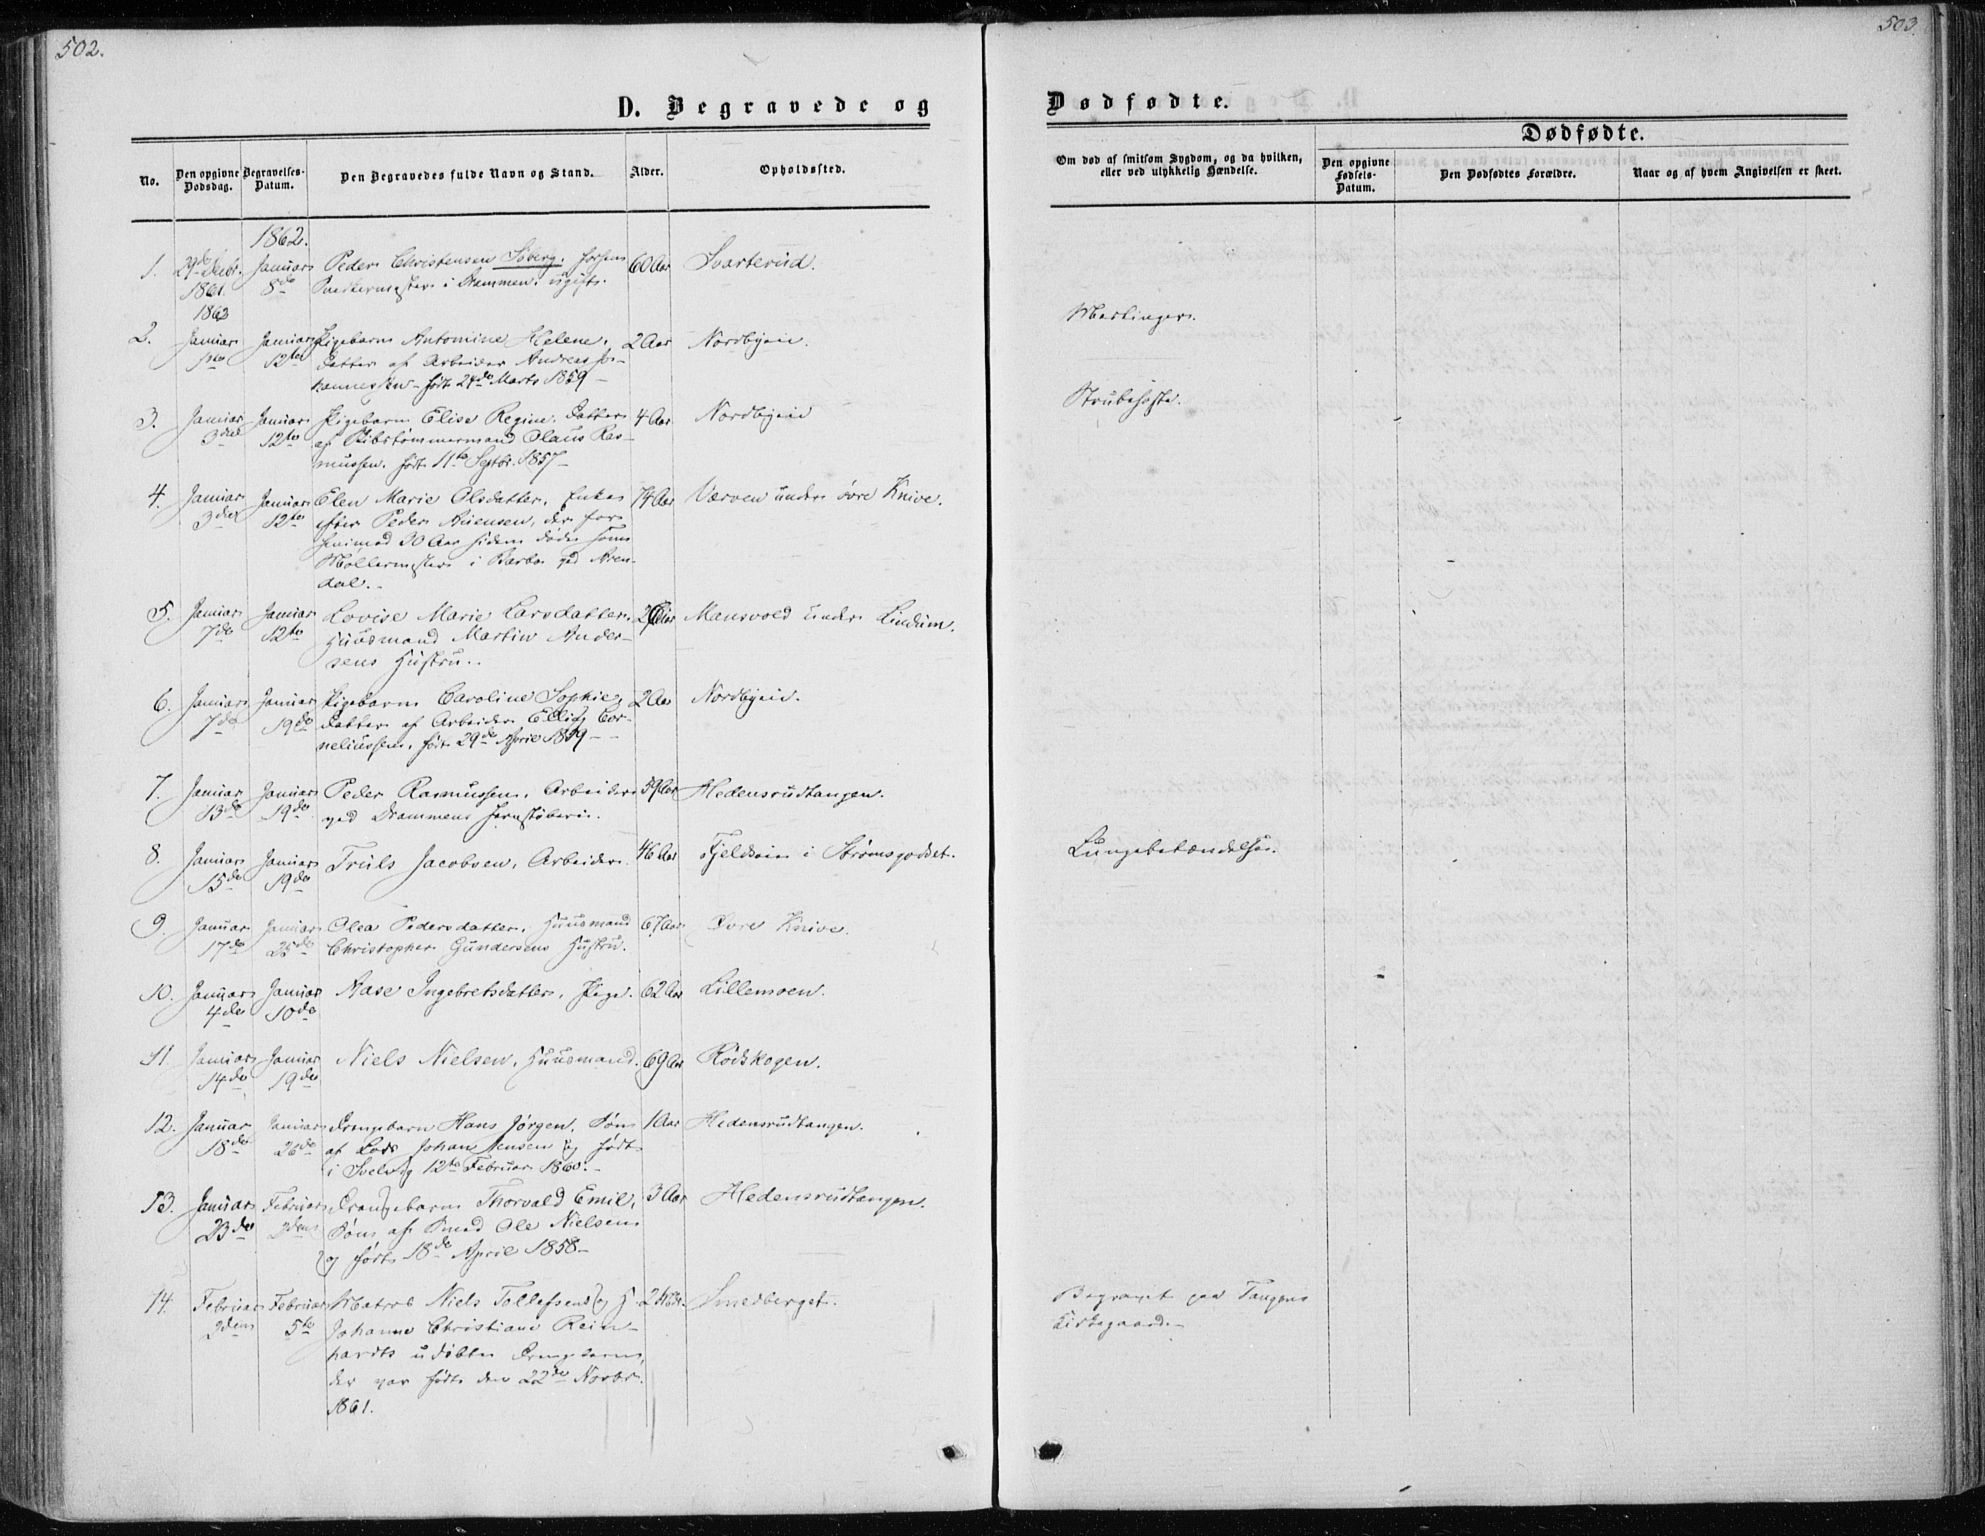 502.
503.
D. Begravede og
Dødfødte.
Dødfødte.
No.
Den opgivne Dødsdag.
Begravelses-Datum.
Den Begravedes fulde Navn og Stand.
Alder.
Opholdssted.
Om død af smitsom Sygdom, og da hvilken,
eller ved ulykkelig Hændelse.
Den opgivne Fødsels-Datum.
Den Dødfødtes Forældre.
Naar og af hvem Angivelsen er skeet.
1862.
1. 29de Decbr. Januar Peder Christensen Søberg, forhen 60 Aar Svarterud.
1861. 8de Snedkermester i Drammen, ugift.
1862
2. Januar Januar Pigebarn Antomine Helene, 2 Aar Nordbyeie. Mæslinger.
1ste 12te Datter af Arbeider Andreas Jo-
hannessen – født 24de Marts 1859 –
3. Januar Januar Pigebarn Elise Regine, Datter 4 Aar Nordbyeie Strubehoste.
3die 12te af Skibstømmermand Olaus Ras-
mussen. født 11te Septbr. 1857 –
4. Januar Januar Elen Marie Olsdatter, Enke 74 Aar Værven under øvre Knive.
3die 12te efter Peder Auensen, der for
henimod 30 Aar siden døde som
Møllermester i Barbo ved Aren-
dal. –
5. Januar Januar Lovise Marie Larsdatter, Aar Mansvold under Lindum.
7de 12te Huusmand Martin Ander-
sens Hustru.
6. Januar Januar Pigebarn Caroline Sophie, 2 Aar Nordbyeie.
7de 19de Datter af Arbeider Ellig Cor-
neliussen, født 29de April 1859 –
7. Januar Januar Peder Rasmussen, Arbeider 59 Aar Hedensrudtangen.
13de 19de ved Drammens Jernstøberi.
8. Januar Januar Truls Jacobsen, Arbeider. 46 Aar Fjeldeie i Strømsgodset. Lungebetændelse.
15de 19de
9. Januar Januar Olea Pedersdatter, Huusmand 67 Aar Øvre Knive.
17de 25de Christopher Gundersens Hustru.
10. Januar Januar Aase Ingebretsdatter, Pige. 62 Aar Lillemoen.
4de 10de
11. Januar Januar Niels Nielsen, Huusmand. 69 Aar Rødskogen.
14de 19de
12. Januar Januar Drengebarn Hans Jørgen, Søn 1 Aar Hedensrudtangen.
18de 26de af Lods Johan Jensen og født
i Svelvig 12te Februar 1860. –
13. Januar Februar Drengebarn Thorvald Emil, 3 Aar Hedensrudtangen.
23de 2den Søn af Smed Ole Nielsen
og født 18de April 1858 –
14. Februar Februar Matros Niels Tollefsens og H. Smedberget. Begravet paa Tangens
2den 5te Johanne Christiane Rein- Kirkegaard. –
hardts udøbte Drengebarn,
der var født den 22de Novbr.
1861.